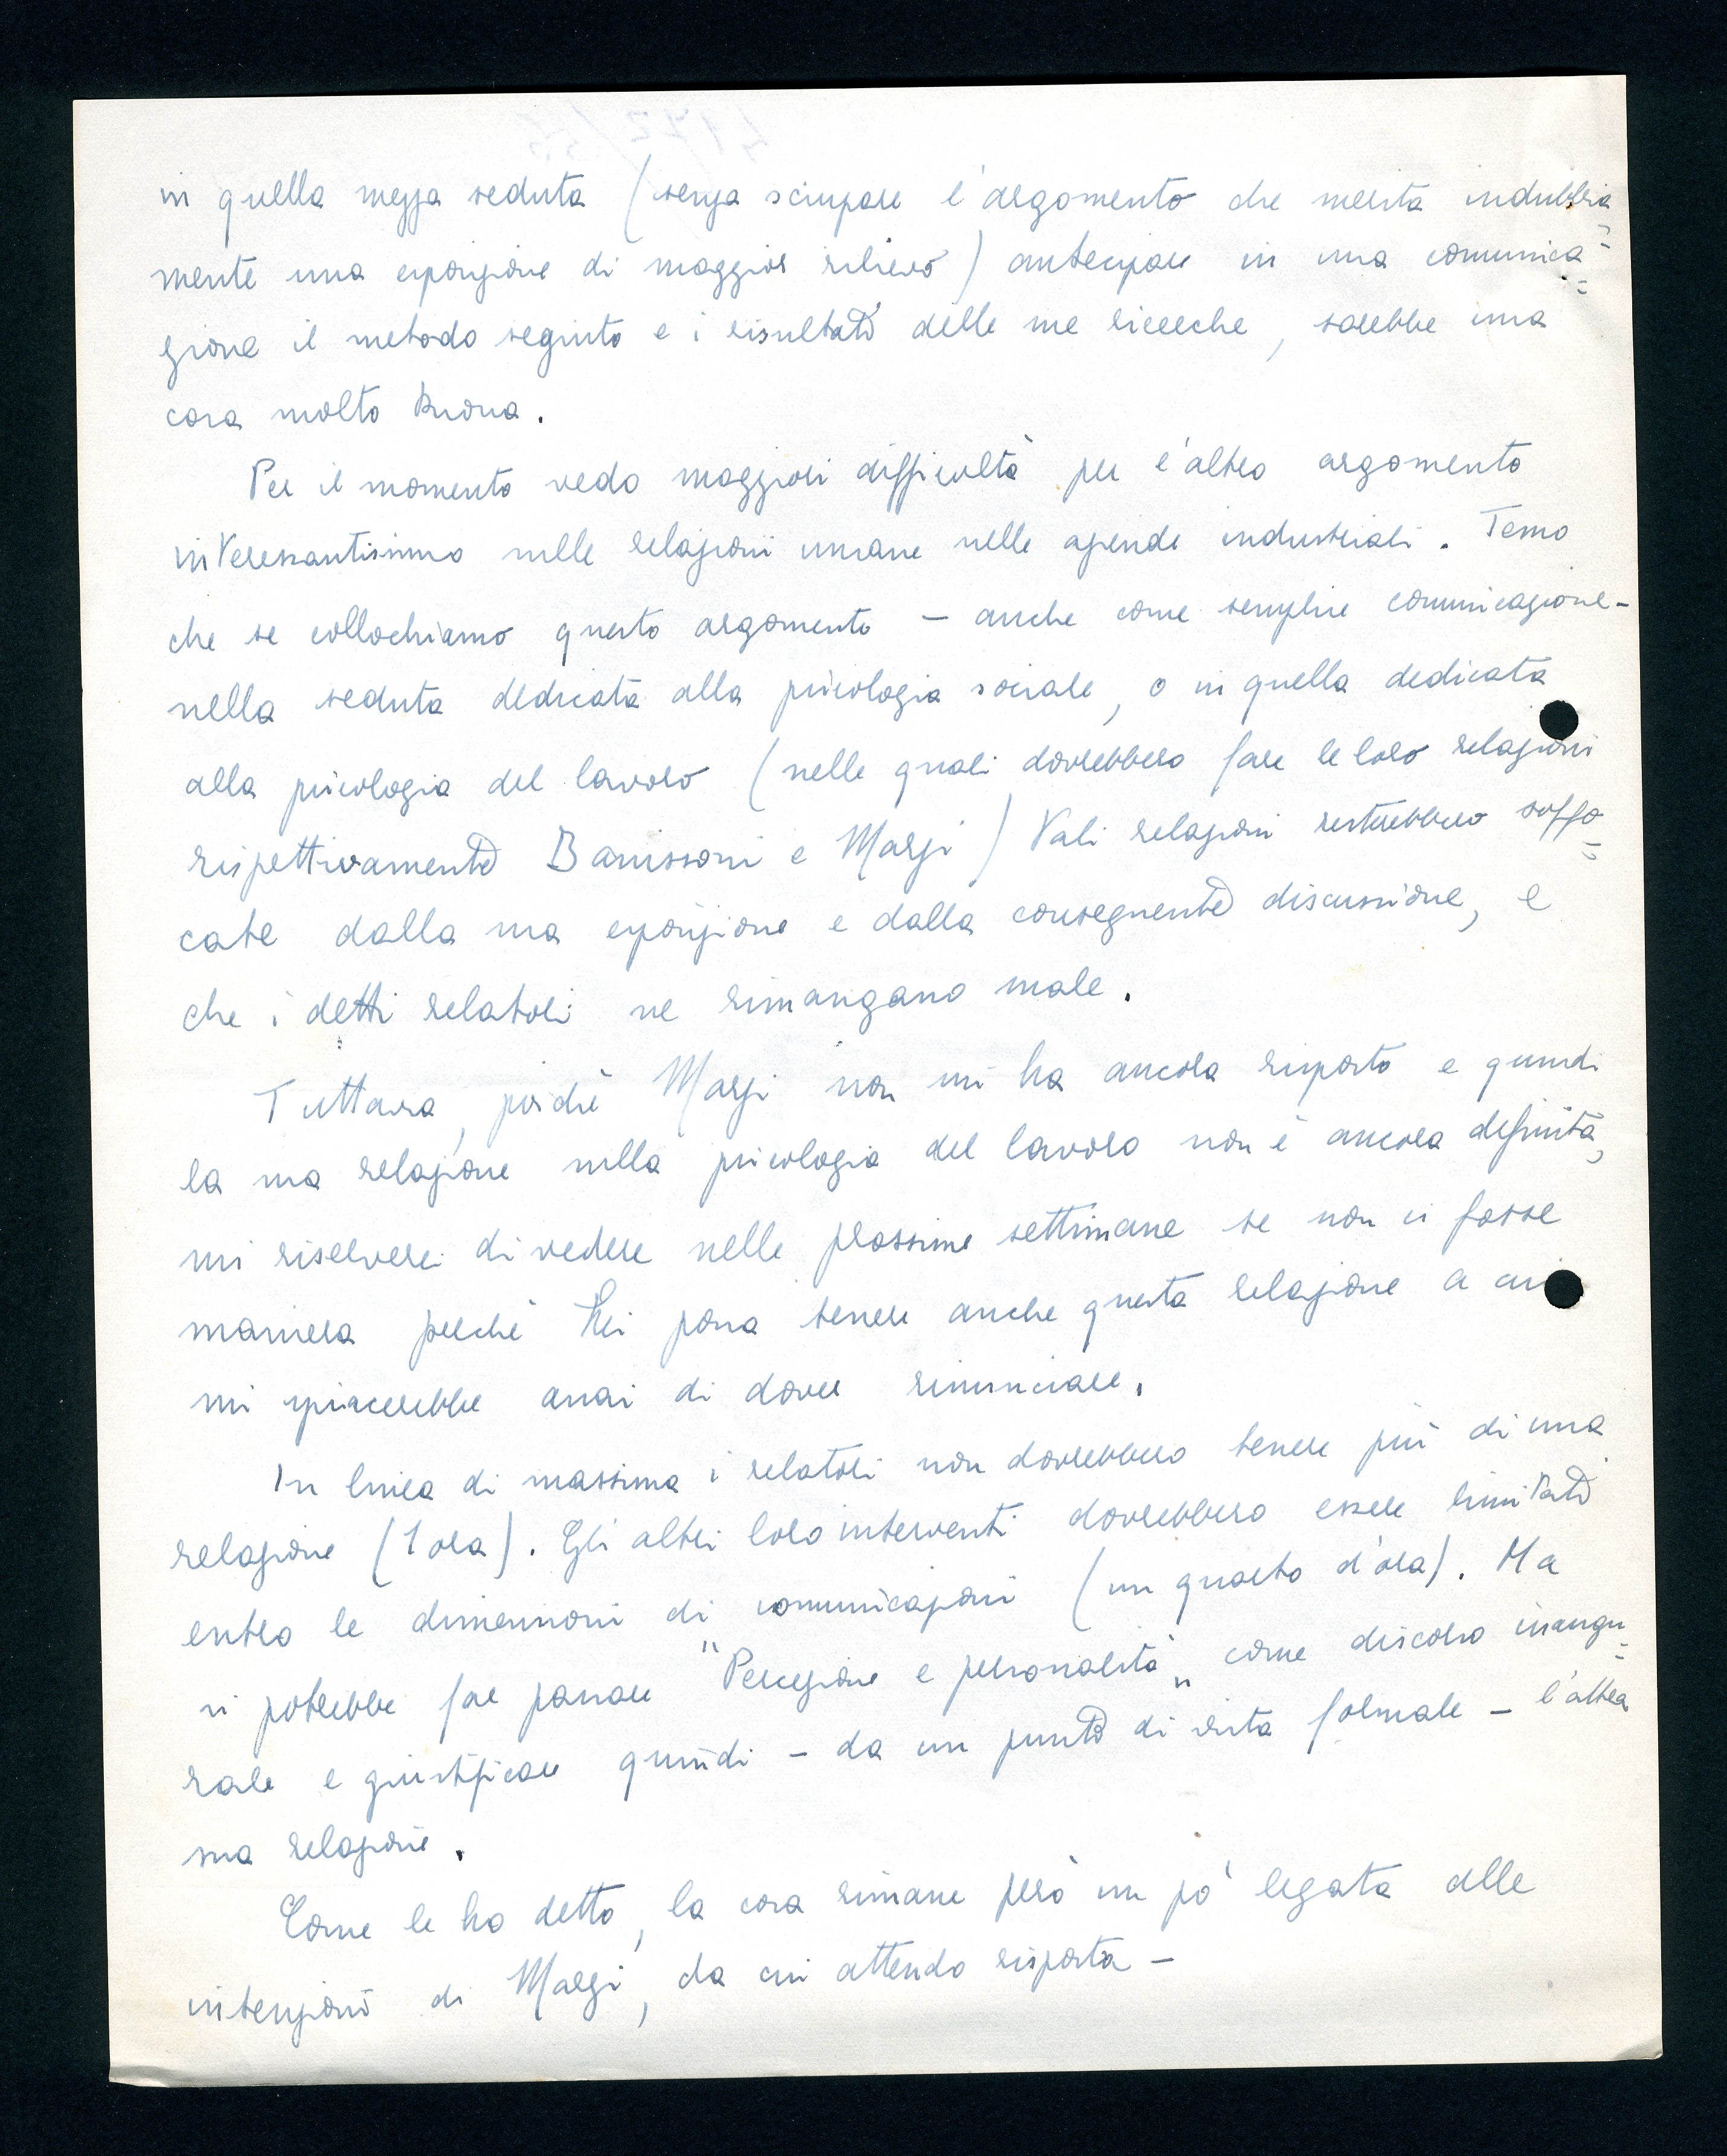 in quella mezza seduta (senza sciupare l'argomento che merita indubbia=
mente una esposizione di maggior rilievo) anticipare in una comunica=
zione il metodo seguito e i risultati delle sue ricerche, sarebbe una
cosa molto buona.
Per il momento vedo maggiori difficoltà per l'altro argomento
interessantissimo sulle relazioni umane nelle aziende industriali. Temo
che se collochiamo questo argomento – anche come semplice comunicazione –
nella seduta dedicata alla psicologia sociale, o in quella dedicata
alla psicologia del lavoro (nelle quali dovrebbero fare le loro relazioni
rispettivamente Banissoni e Marzi) tali relazioni resterebbero soffo=
cate dalla sua esposizione e dalla conseguente discussione, e
che i detti relatori ne rimangano male.
Tuttavia, poichè Marzi non mi ha ancora risposto e quindi
la sua relazione sulla psicologia del lavoro non è ancora definita,
mi riserverei di vedere nelle prossime settimane se non ci fosse
maniera perchè Lei possa tenere anche questa relazione a cui
mi spiacerebbe assai di dover rinunciare.
In linea di massima i relatori non dovrebbero tenere più di una
relazione (1 ora). Gli altri loro interventi dovrebbero essere limitati
entro le dimensioni di comunicazioni (un quarto d'ora). Ma
si potrebbe far passare "Percezione e personalità" come discorso inaugu=
rale e giustificare quindi – da un punto di vista formale – l'altra
sua relazione.
Come le ho detto, la cosa rimane però un pò legata alle
intenzioni di Marzi, da cui attendo risposta –